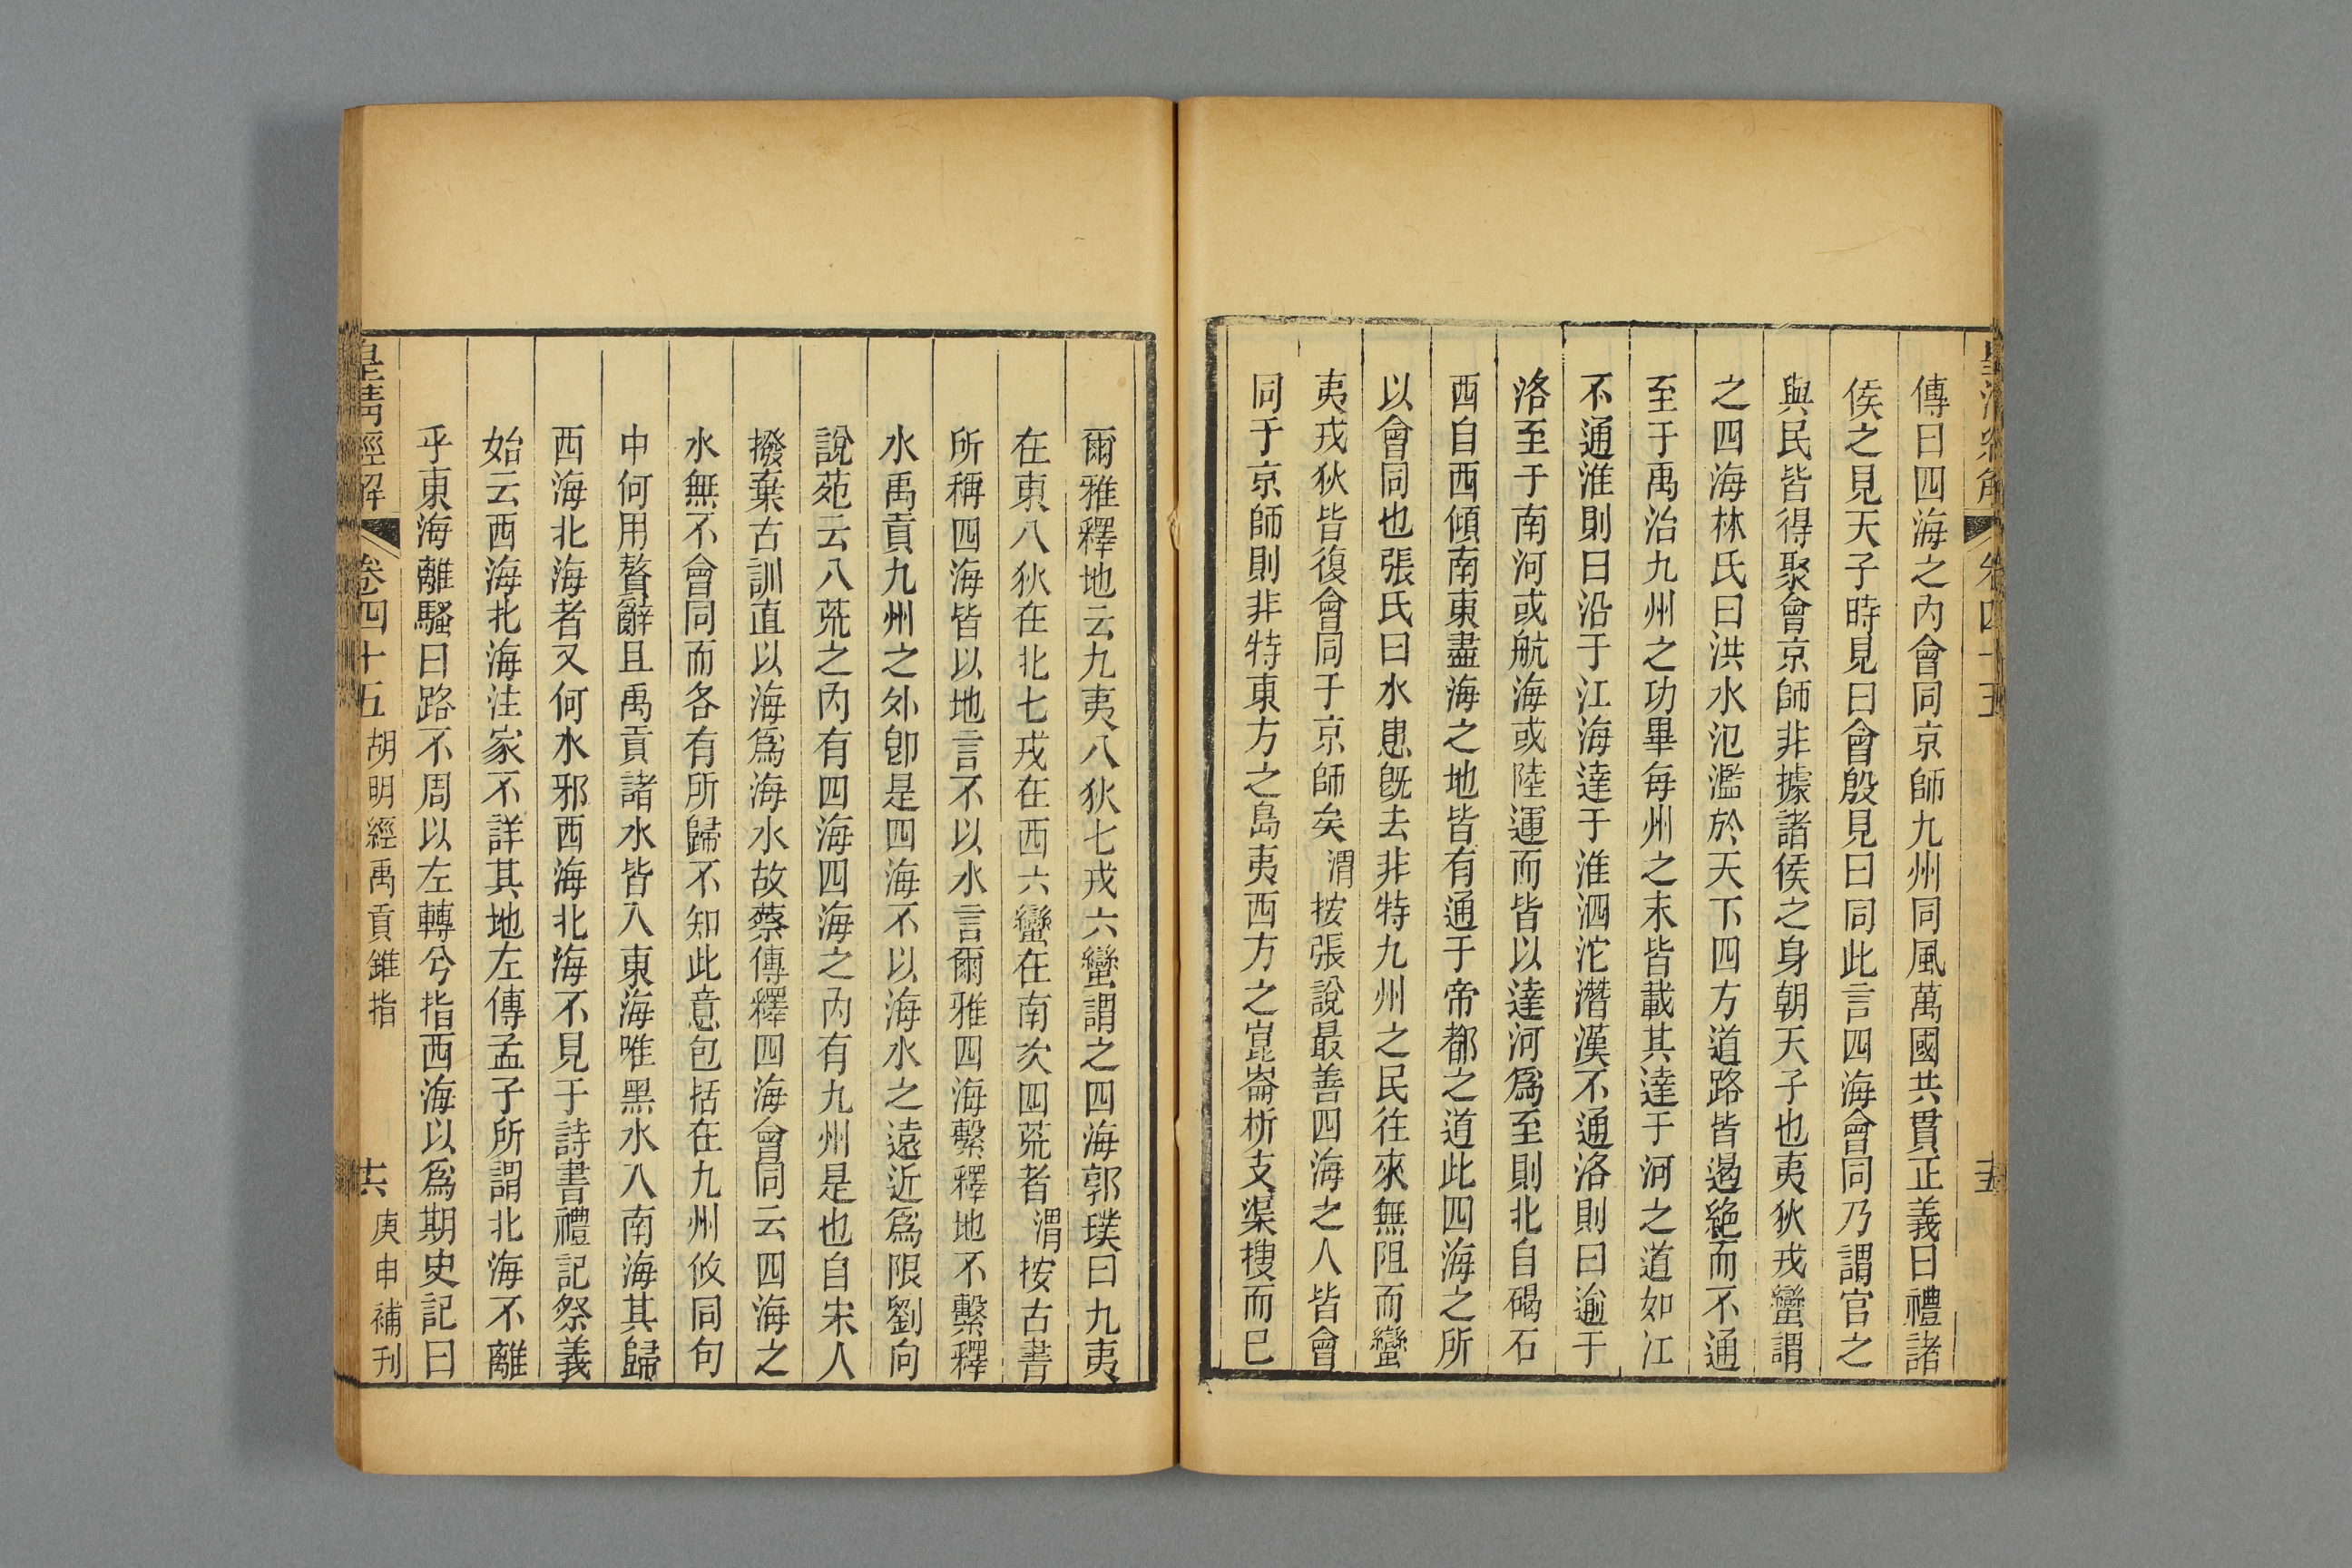 皇清經解 卷四十五 十五
傳曰四海之內會同京師九州同風萬國共貫正義曰禮諸
侯之見天子時見曰會殷見曰同此言四海會同乃謂官之
與民皆得聚會京師非據諸侯之身朝天子也夷狄戎蠻謂
之四海林氏曰洪水氾濫於天下四方道路皆遏絕而不通
至于禹治九州之功畢每州之末皆載其達于河之道如江
不通淮則曰沿于江海達于淮泗沱潛漢不通洛則曰逾于
洛至于南河或航海或陸運而皆以達河爲至則北自碣石
西自西傾南東盡海之地皆有通于帝都之道此四海之所
以會同也張氏曰水患旣去非特九州之民往來無阻而蠻
夷戎狄皆復會同于京師矣渭按張說最善四海之人皆會
同于京師則非特東方之島夷西方之崑崙析支渠搜而已
爾雅釋地云九夷八狄七戎六蠻謂之四海郭璞曰九夷
在東八狄在北七戎在西六蠻在南次四荒者渭按古書
所稱四海皆以地言不以水言爾雅四海繫釋地不繫釋
水禹貢九州之外卽是四海不以海水之遠近爲限劉向
說苑云八荒之內有四海四海之內有九州是也自宋人
撥棄古訓直以海爲海水故蔡傳釋四海會同云四海之
水無不會同而各有所歸不知此意包括在九州攸同句
中何用贅辭且禹貢諸水皆入東海唯黑水入南海其歸
西海北海者又何水邪西海北海不見于詩書禮記祭義
始云西海北海注家不詳其地左傳孟子所謂北海不離
乎東海離騷曰路不周以左轉兮指西海以爲期史記曰
皇清經解 卷四十五 胡明經禹貢錐指 十六 庚申補刊